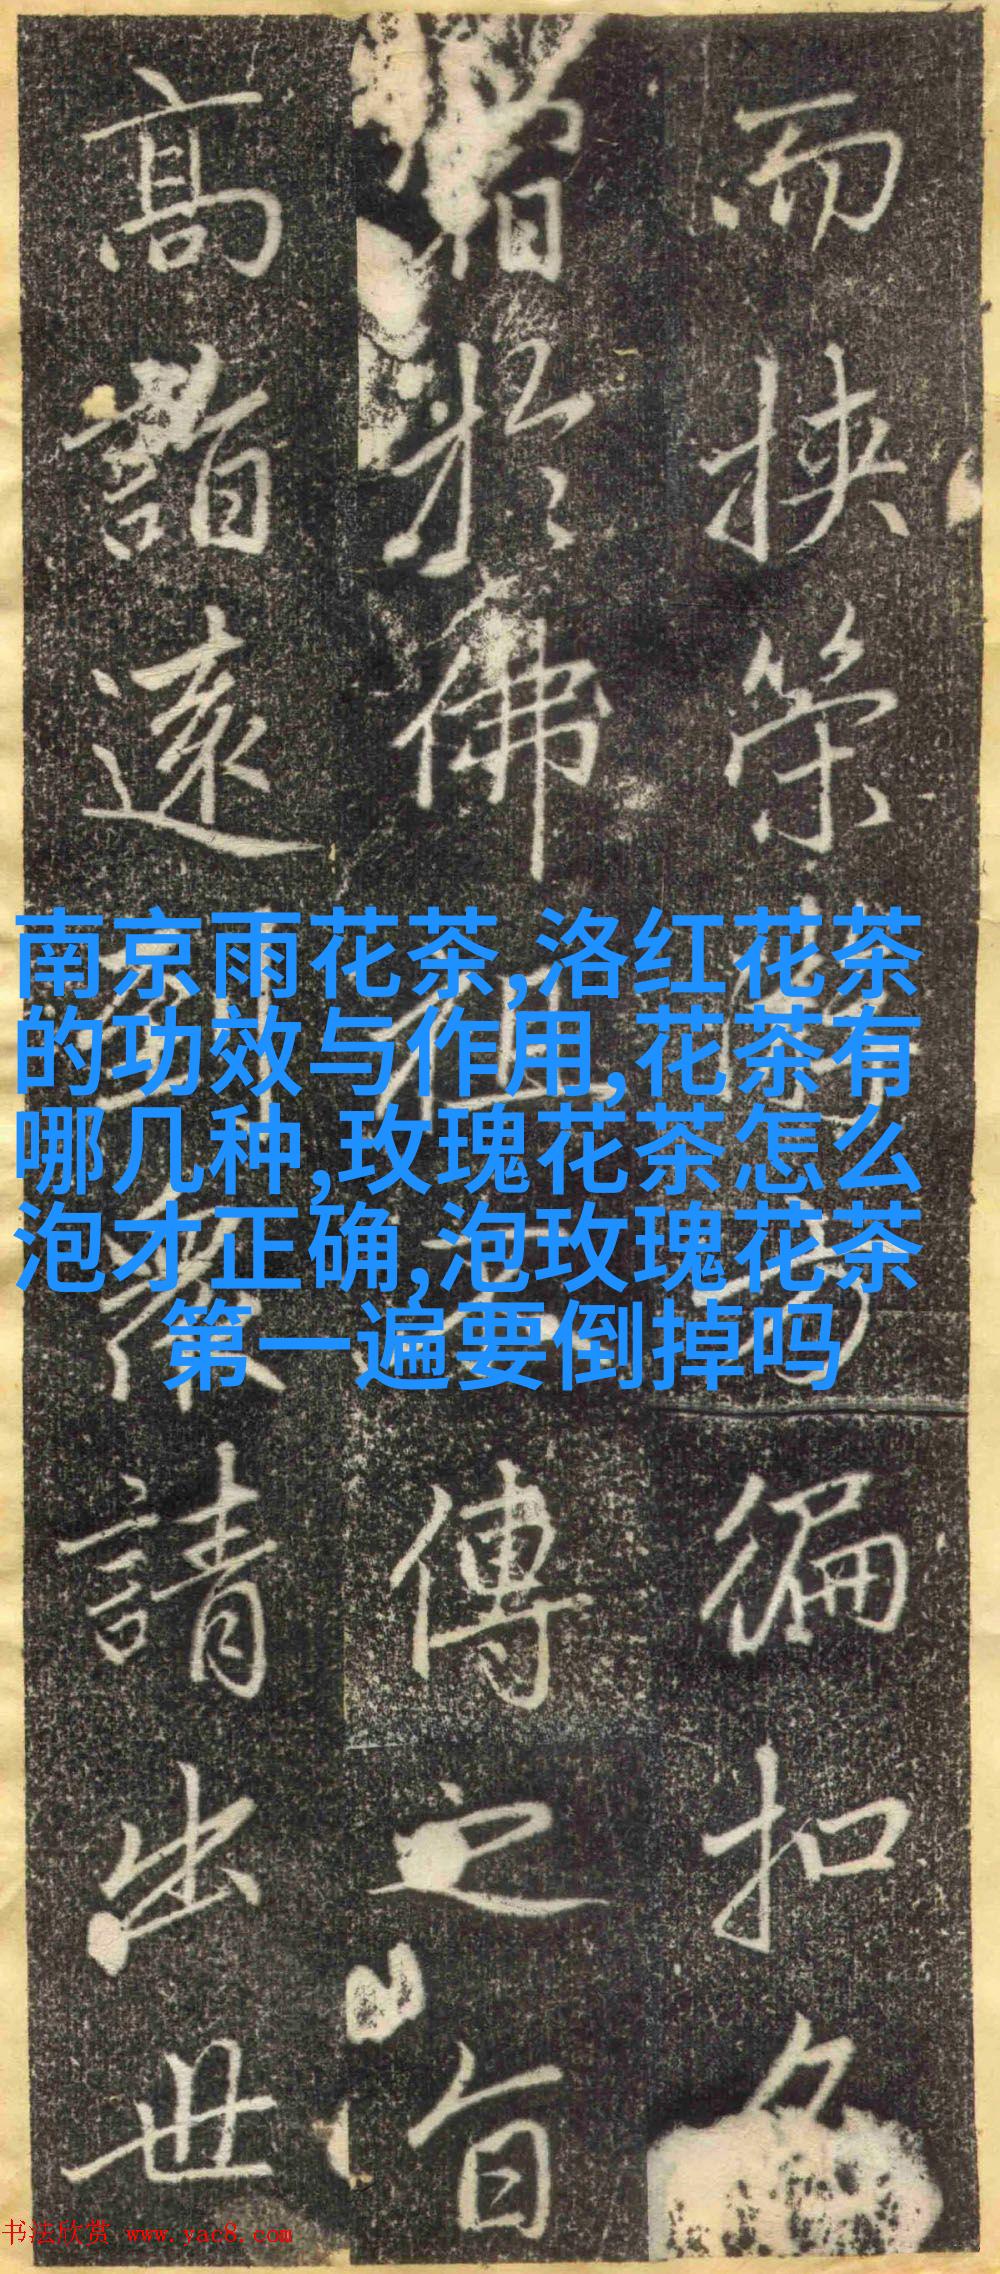 而挾策
徧扣
於佛祖
傳之旨
高詣遠
請出世
南京雨花茶,洛红花茶
的功效与作用,花茶有
哪几种,玫瑰花茶怎么
泡才正确,泡玫瑰花茶
第一遍要倒掉吗
书法欣赏 www.yac8.com